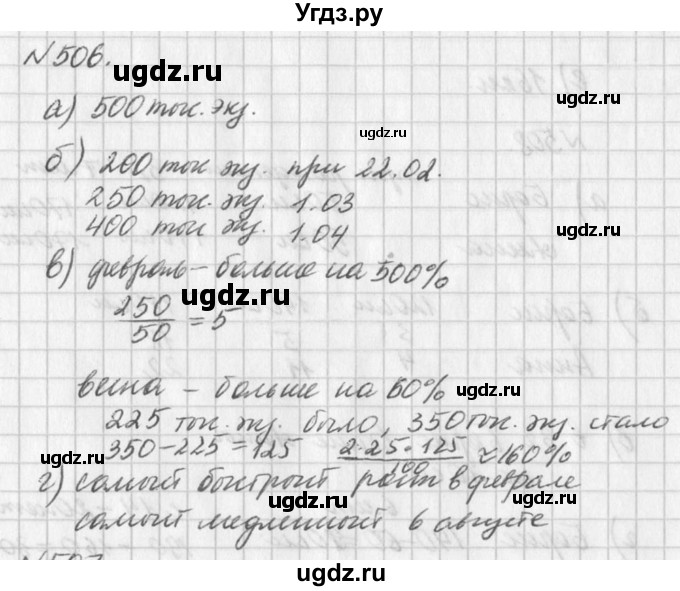 Угдз.ру
№506.
а) 500 тыс. экз.
б) 200 тыс экз. при 22.02.
250 тыс. экз. 1.03
400 тыс экз. 1.04
в) февраль – больше на 500%
250/50 = 5
весна – больше на 60%
225 тыс. экз. было, 350 тыс. экз. стало
350-225=125 2.25·125/100 ≈160%
г) самый быстрый рост в феврале
самый медленный в августе
ugdz.ru
ugdz.ru
ugdz.ru
ugdz.ru
ugdz.ru
ugdz.ru
ugdz.ru
ugdz.ru
ugdz.ru
ugdz.ru
ugdz.ru